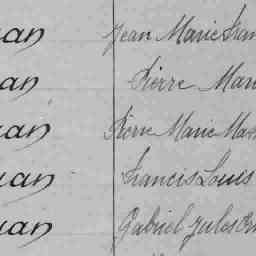 uan Jean Marie Fran
an Pierre Mari
uan Pierre Marie Ma
uan Francis Louis
uan Gabriel Jules